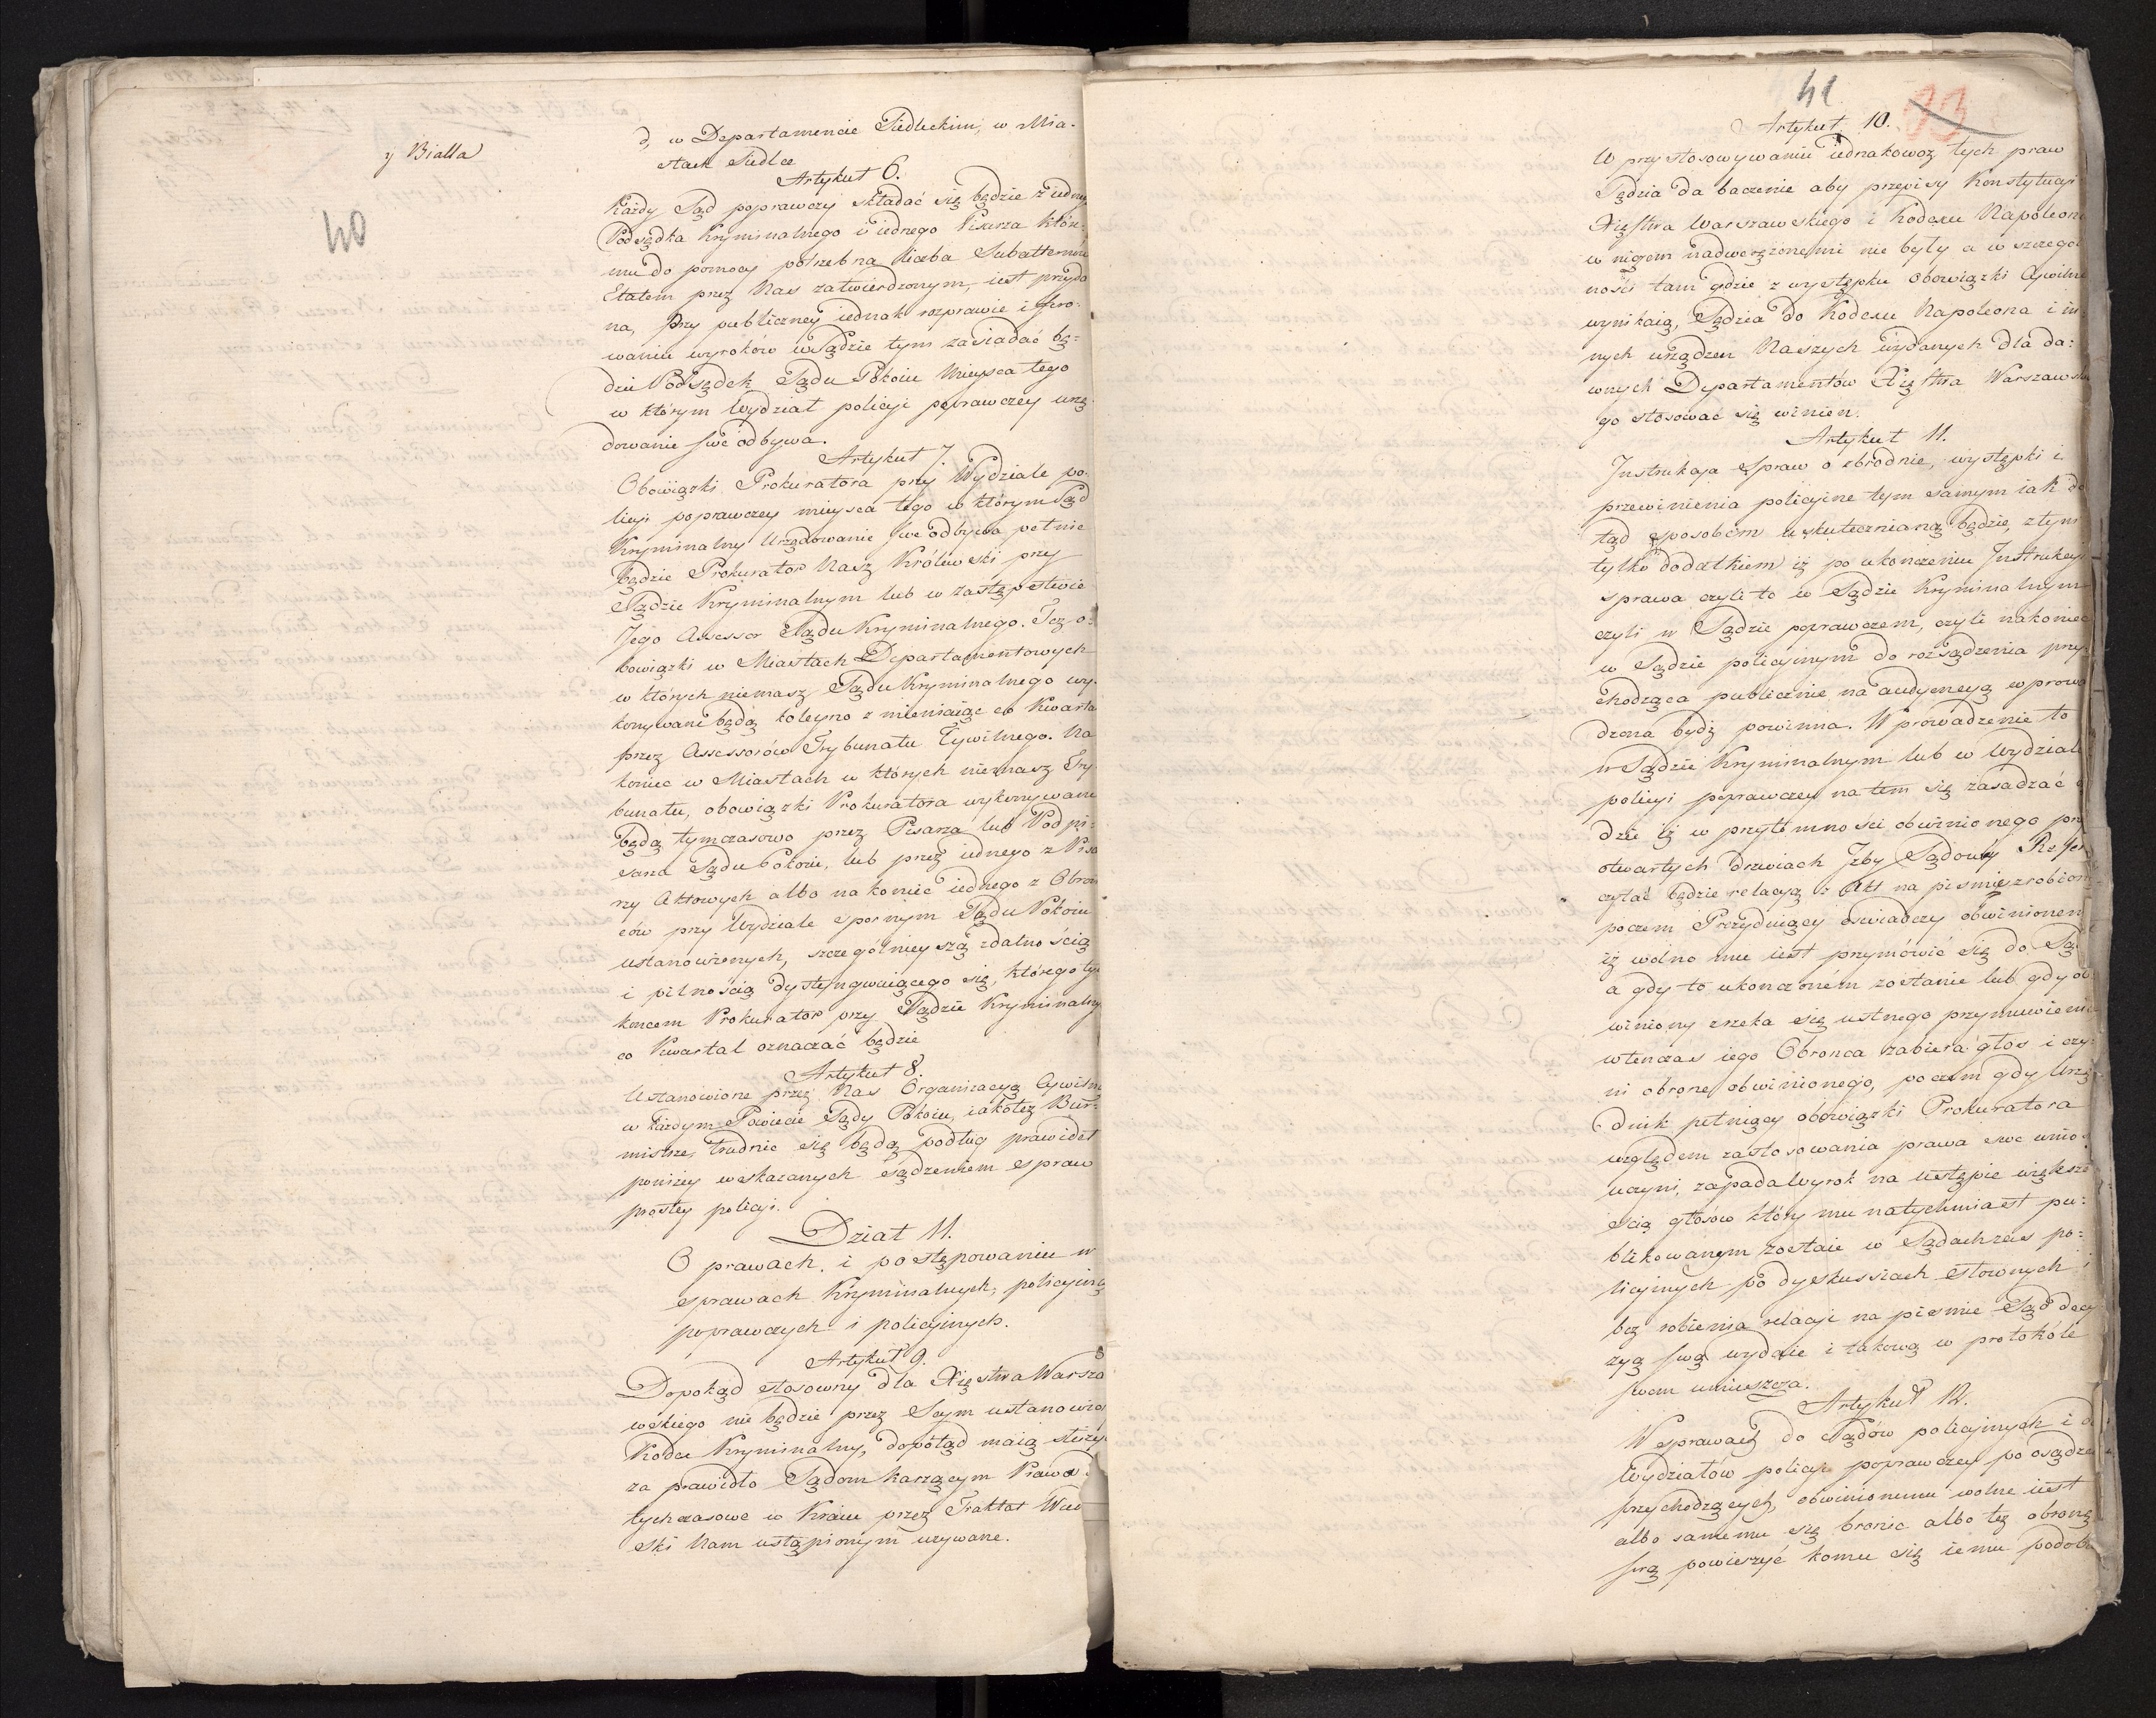 y Bialla
40
d, w Departamencie Siedleckim, w Mia-
stach Siedlce
Artykuł 6.
Każdy Sąd poprawczy składać się będzie z iedne
Podsędka Kryminalnego i iednego Pisarza któr
mu do pomocy potrzebna liczba Subalternów
Etatem przez Nas zatwierdzonym, iest przyda
na, Przy publiczney iednak rozprawie i fero-
waniu wyroków w Sądzie tym zasiadać bę-
dzie Podsędek Sądu Pokoiu Mieysca tego
w którym Wydział policyi poprawczey urzę-
dowanie swe odbywa.
Artykuł 7.
Obowiązki Prokuratora przy Wydziale po-
licyi poprawczey mieysca tego w którym Sąd
Kryminalny Urzędowanie swe odbywa pełnić
będzie Prokurator Nasz Królewski przy
Sądzie Kryminalnym lub w zastępstwie
Jego Assessor Sądu Kryminalnego. Też o-
bowiązki w Miastach Departamentowych
w których niemasz Sądu Kryminalnego wy-
konywane będą koleyno z mieniaiąc co Kwarta
przez Assessorów Trybunału Cywilnego. Na
koniec w Miastach w których niemasz Try
bunału, obowiązki Prokuratora wykonywane
będą tymczasowo przez Pisarza lub Podpi-
sarza Sądu Pokoiu, lub przez iednego z Pisa
rzy Aktowych albo nakoniec iednego z Obroń
ców przy Wydziale spornym Sądu Pokoiu
ustanowionych, szczególnieyszą zdatnością
i pilnością dystyngwuiącego się, którego ty
koncem Prokurator przy Sądzie Kryminalny
co Kwartał oznaczać będzie
Artykuł 8.
Ustanowione przez Nas Organizacyą Cywiln
w każdym Powiecie Sądy Pokoiu, iakoteż Bur-
mistrze, trudnić się będą podług prawideł
poniżey wskazanych sądzeniem spraw
prostey policyi.
Dział 11.
O prawach, i postępowaniu w
sprawach Kryminalnych, policyino
poprawczych i policyinych.
Artykuł 9.
Dopokąd stosowny dla Xięstwa Warsza
wskiego nie będzie przez Seym ustanowion
Kodex Kryminalny, dopótąd maią służy
za prawidło Sądom karzącym Prawa
tychczasowe w Kraiu przez Traktat Wied
ski Nam ustąpionym używane.
41
93
Artykuł 10.
W przystosowywaniu iednakowoż tych praw
Sędzia da baczenie aby przepisy Konstytucyi
Xięstwa Warszawskiego i Kodexu Napoleona
w niczem nadwerężonemi nie były a w szczegól
ności tam gdzie z występku obowiązki Cywilne
wynikaią, Sędzia do Kodexu Napoleona i in-
nych urządzeń Naszych wydanych dla da-
wnych Departamentów Xięstwa Warszawskie
go stosować się winien.
Artykuł 11.
Instrukcya spraw o zbrodnie, występki i
przewinienia policyine tym samym iak do
tąd sposobem uskutecznianą będzie, z tym
tylko dodatkiem iż po ukonczeniu Instrukcyi
sprawa czyli to w Sądzie Kryminalnym
czyli w Sądzie poprawczem, czyli nakoniec
w Sądzie policyinym do rozsądzenia przy-
chodząca publicznie na audyencyą wprowa
dzona bydź powinna. Wprowadzenie to
w Sądzie Kryminalnym lub w Wydziale
policyi poprawczey na tem się zasadzać
dzie iż w przytomności obwinionego prz
otwartych drzwiach Izby Sądowey Refer
czytać będzie relacyą z Akt na piśmie zrobion
poczem Prezyduiący oświadczy obwinionem
iż wolno mu iest przymówić się do Są
a gdy to ukonczonem zostanie lub gdy ob
winiony zrzeka się ustnego przymuwienia
wtenczas iego Obronca zabiera głos i czy-
ni obronę obwinionego, poczem gdy Urzę
dnik pełniący obowiązki Prokuratora
względem zastosowania prawa swe wnio-
uczyni, zapada Wyrok na ustępie większo
ścią głosów który mu natychmiast pu-
blikowanym zostaie w Sądach zaś po-
licyinych po dyskussiach słownych i
bez robienia relacyi na piśmie Sąd decy
zyą swą wydaie i takową w protokóle
swem umieszcza.
Artykuł 12.
W sprawach do Sądów policyinych i do
Wydziałów policyi poprawczey po osądze
przychodzących, obwinionemu wolne iest
albo samemu się bronić albo też obronę
swą powierzyć komu się iemu podoba